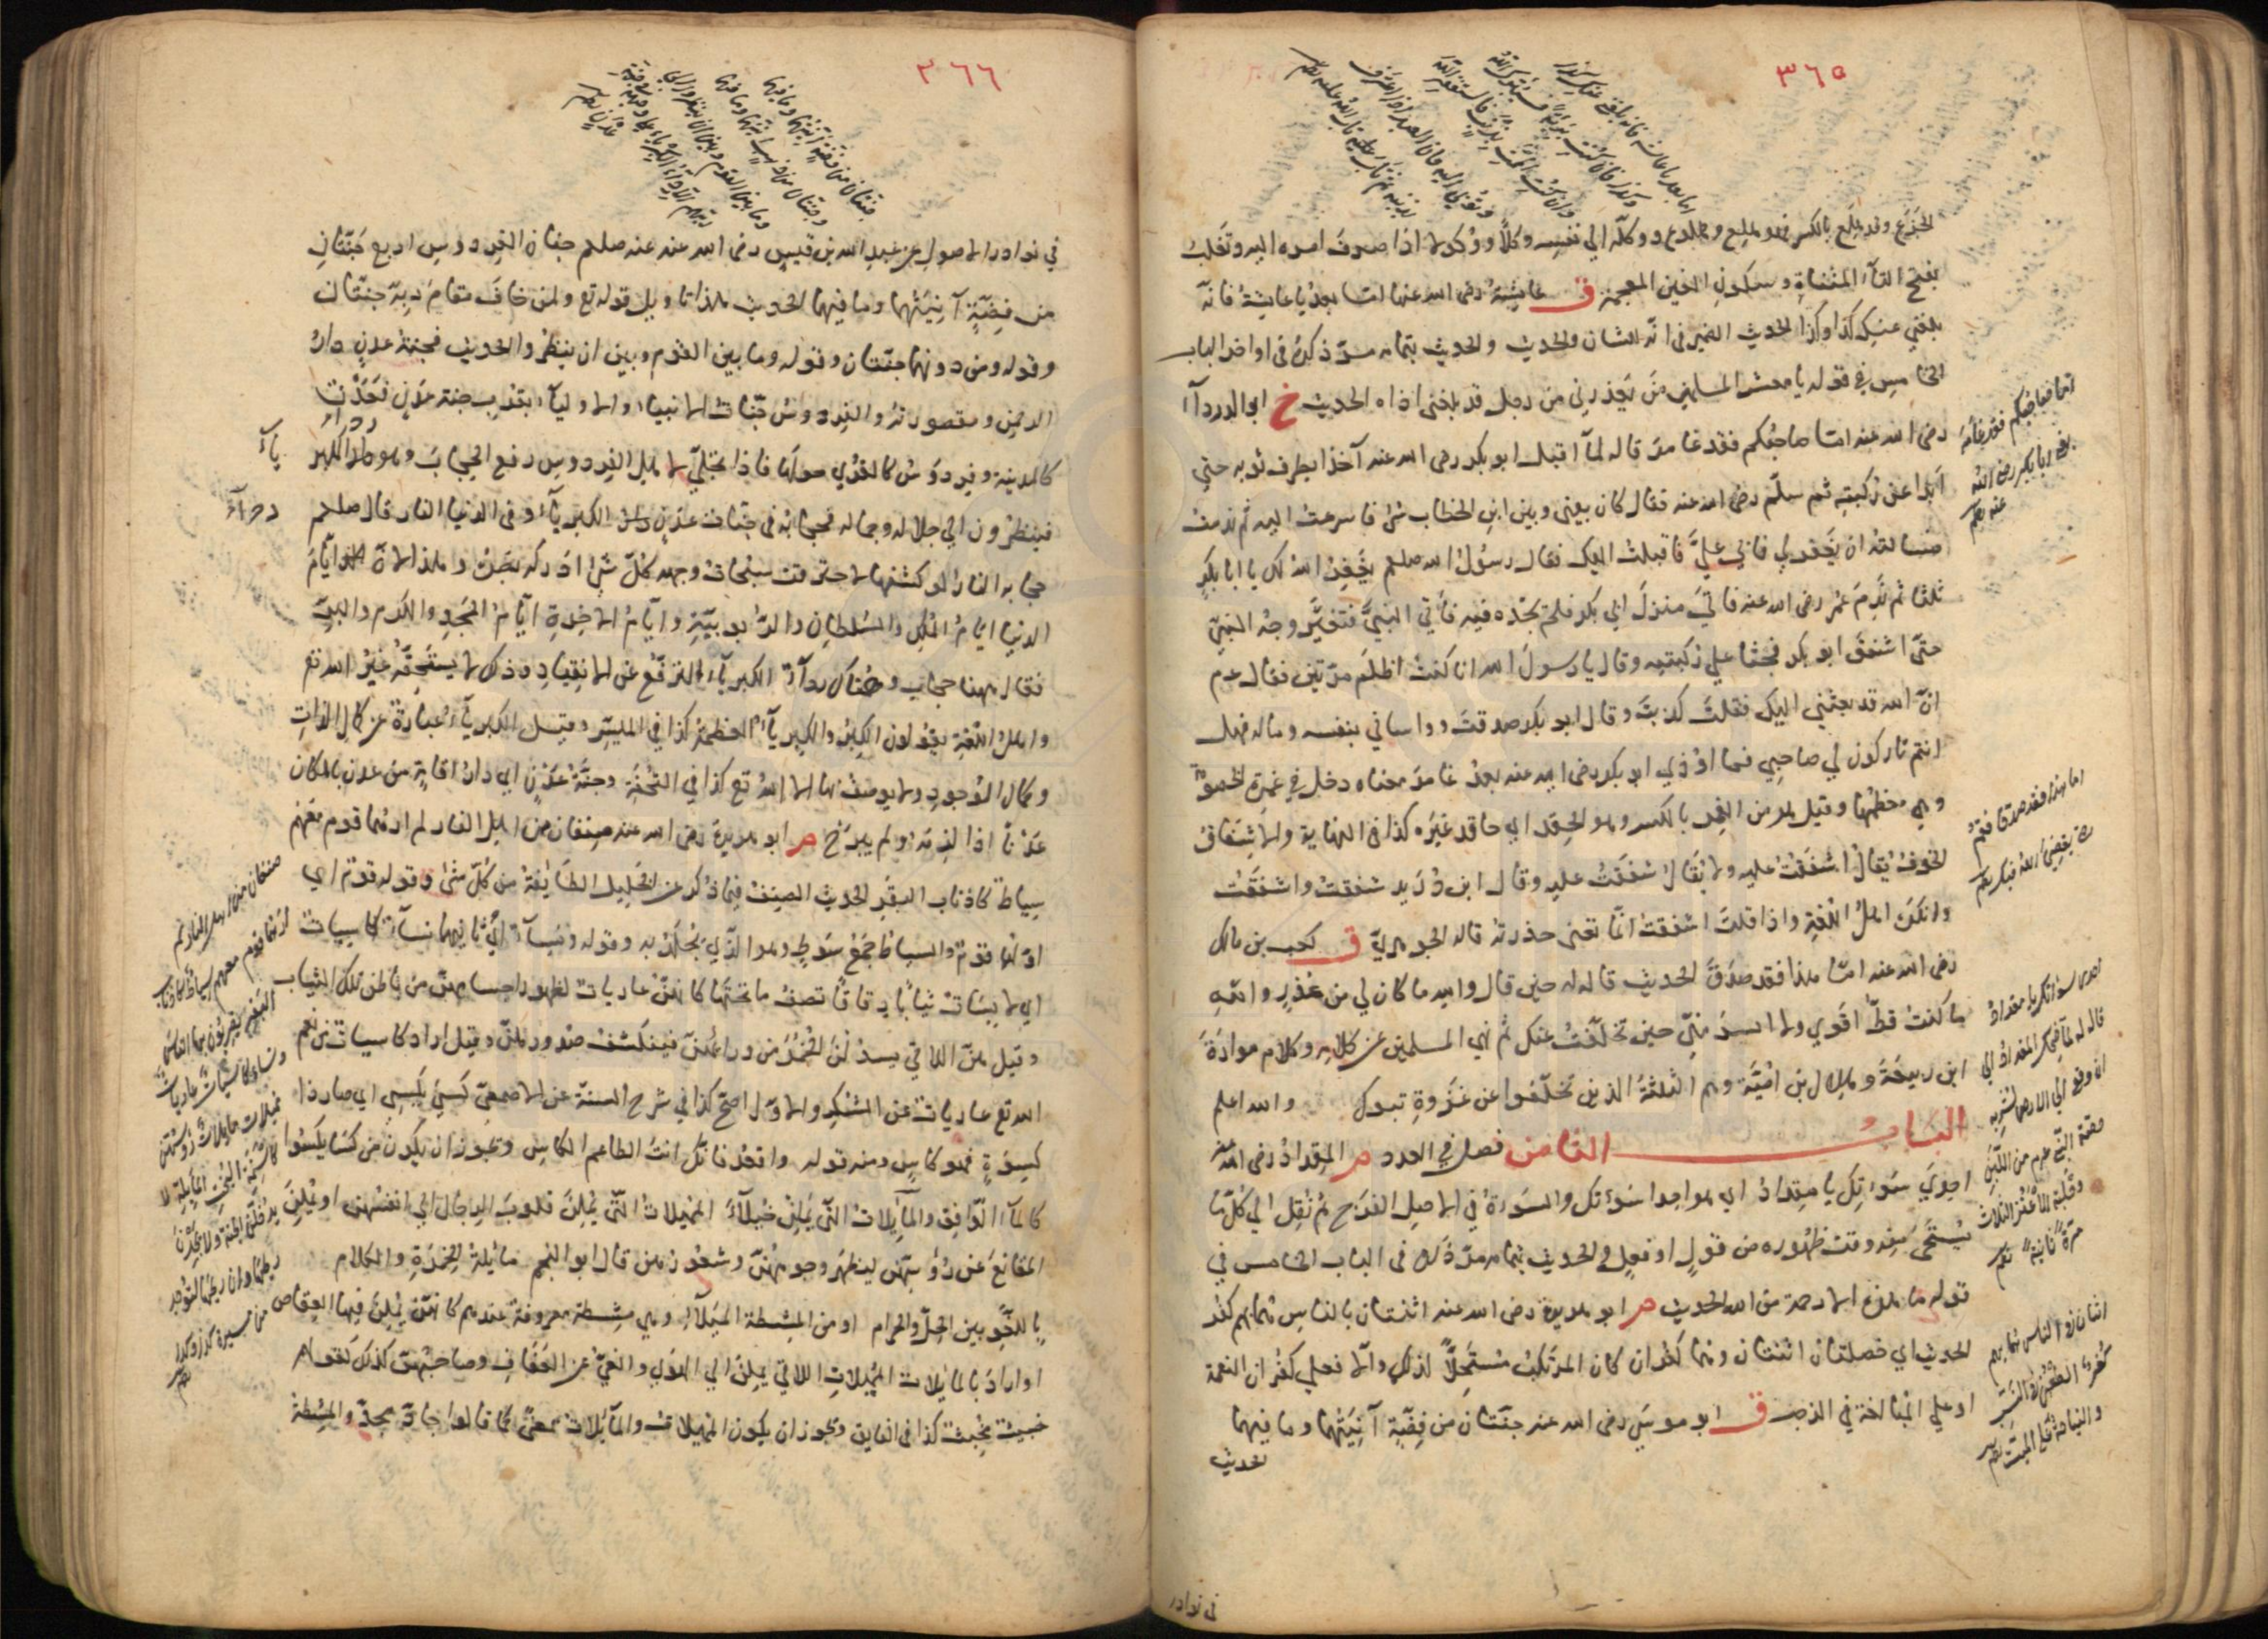 ٣٦٥
اما بعد يا عائشة فانه بلغني عنك كذا
وكذا فان كنت بريئة فسيبرئك الله
وان كنت الممت بذنب فاستغفري الله
وتوبي اليه فان العبد اذا اعترف
بذنبه ثم تاب تاب الله عليه
الجَزَع وقد هلِع بالكسر فهو هلِع وهلوع ووكله الي نفسه وكلًا ووُكولا اذا صرف امره اليه وتغلب
بفتح التآء المثناة وسكون الغين المعجمة ق عايشة رضى الله عنها اما بعد يا عايشة فانه
بلغني عنكِ كذا وكذا الحديث الضمير فى انه للشان والحديث والحديث بتمامه مرّ ذكره فى اواخر الباب
الخامس في قوله يا معشر المسلمين مَن يعذرني من رجل قد بلغنى اذاه الحديث خ ابو الدردآء
رضى الله عنه امّا صاحبكم فقد غامر قاله لمآ اقبل ابو بكر رضى الله عنه آخذا بطرف ثوبه حتى
ابدا عن ركبته ثم سلّم رضى الله عنه فقال كان بينى وبين ابن الخطاب شئ فاسرعت اليه ثم ندمت
فسالته ان يغفر لي فابي عليّ فاقبلت اليك فقال رسول الله صلعم يغفر الله لك يا ابا بكر
ثلثا ثم نَدِمَ عمر رضى الله عنه فاتي منزل ابي بكر فلم يجده فيه فاتي النبيَّ فتغيّر وجه النبيّ
حتّى اشفق ابو بكر فجثا علي ركبتيه وقال يا رسول الله انا كنت اظلم مرّتين فقال عم
انّ الله قد بعثني اليكم فقلتم كذبتَ وقال ابو بكر صدقتَ وواساني بنفسه وماله فهل
انتم تاركون لي صاحبِي فما اوذي ابو بكر رضى الله عنه بعد غامر معناه دخل في غمرة الخصومة
وهي معظمها وقيل هو من الغِمر بالكسر وهو الحقد اي حاقد غيره كذا فى النهاية والاشفاق
الخوف يقال اشفقت عليه ولا يقال شفقت عليه وقال ابن دُرَيد شفقت واشفقت
وانكره اهل اللغة واذا قلت اشفقت انّما تعنى حذرته قاله الجوهريّ ق كعب بن مالك
رضى الله عنه امّا هذا فقد صدق الحديث قاله له حين قال والله ما كان لي من عُذر والله
ما كنتُ قطّ اقوي ولا ايسر منّي حين تخلّفت عنك ثم نهي المسلمين عن كلامه وكلام مرارة
ابن ربيعة وهلال بن اميّة وهم الثلثة الذين تخلّفوا عن غزوة تبوك والله اعلم
البـاب الثامن فصل في العدد م المِقداد رضى الله عنه
احدي سَوءَاتِك يا مِقداد اي هو احدا سَوءاتك والسَوءة في الاصل الفرج ثم نُقِل الي كلّ ما
يُستحيَى منه وقت ظهوره من قولٍ او فعلٍ والحديث بتمامه مرّ ذكره فى الباب الخامس في
قوله ما هذه الا رحمة من الله الحديث م ابو هريرة رضى الله عنه اثنتان بالناس هما بهم كفر
الحديث اي خصلتان اثنتان وهما كفران كان المرتكبُ مُستحِلًا لذلك والّا فعلي كفران النعمة
او علي المبالغة في الذجر ق ابو موسَي رضى الله عنه جنتان من فضّة آنِيَتُهما وما فيهما
الحديث
امّا صاحبكم فقد غامر
يعنى ابا بكر رضى الله
عنه
اما هذا فقد صدق فقم
حتى يقضى الله فيك
احدى سوءاتك يا مقداد
قاله له لمّا ضحك المقداد الى
ان وقع الى الارض لشربه
حصّة النبي عم من اللبن
وحلبه الاعنز الثلاث
مرّة ثانية
اثنتان فى الناس هما بهم
كفر الطعن فى النسب
والنياحة على الميت
فى نوادر
٣٦٦
جنتان من فضة آنيتهما وما فيهما
وجنتان من ذهب آنيتهما وما فيهما
وما بين القوم وبين ان ينظروا الى
ربهم الا رداء الكبرياء على وجهه فى جنة
عدن
في نوادر الاصول عن عبد الله بن قيس رضى الله عنه عنه صلعم جنان الفردوس اربع جَنّتانِ
من فِضّةٍ آنِيَتُهما وما فيهما الحديث هذا تاويل قوله تع ولمن خافَ مقامَ رَبِّه جنّتان
وقوله ومن دونهما جنّتان وقوله وما بين القوم وبين ان ينظروا الحديث فجنة عدنٍ دار
الرحمنِ ومقصورته والفردوسُ جنّات الانبياء والاوليآء بقرب جنة عدنٍ فعَدْن
كالمدينة وفردَوسُ كالقُري حولها فاذا تجلّي لاهل الفردوس رفع الحجابَ وهو رداء الكبر
يآء
فينظرون الي جلاله وجماله فحجابُه فى جنّات عدنٍ رداء الكبريآء وفى الدنيا النار قال صلعم
ردآء
حجابه النار لو كشفها لاحترقت سبُحات وجهه كلّ شئ ادركه بصره وهذا لانّ ايّام
الدنيا ايّام المُلك والسُلطان والرُبوبيّة وايام الاخرة ايّام المجد والكرم والبرّ
فقال ههنا حجاب وهناك ردآء الكبريآء الترفّع عن الانقياد وذلك لا يستحقّه غير الله تع
واهل اللغة يقولون الكِبر والكبريآء العظمة كذا في الميسّر وقيل الكبريآء عبارة عن كمال الذات
وكمال الوجود ولا يوصف بها الا الله تع كذا في التُحفة وجنّة عَدْنٍ اي دار اقامةٍ من عدن بالمكان
عَدْنًا اذا لزمه ولم يبرح م ابو هريرة رضى الله عنه صِنفان من اهل النار لم ارهما قوم معهم
سياط كاذناب البقر الحديث الصِنف فيما ذُكر عن الخليل الطايفة من كلّ شئ وقوله قوم اي
اوّلهما قوم والسِياط جمع سَوط وهو الذي يُجلَد به وقوله ونِسآء اي ثانيهما نسآء كاسيات
اي لابِسات ثيابًا رِقاقًا تصف ما تحتها كانهنّ عاريات لظهور اجسامهنّ من باطن تلك الثياب
وقيل هنّ اللاتي يسدلن الخُمُر من ورائهنّ فينكشف صدورهنّ وقيل اراد كاسيات من نعم
الله تع عاريات عن الشكر والاوّل اصحّ كذا في شرح السنة عن الاصمعيّ كسِيَ يكسي اي صار ذا
كِسوةٍ فهو كاسٍ ومنه قوله واقعُد فانّك انت الطاعم الكاسي ويجوز ان يكون من كسَا يكسُو
كالمآء الدافِق والمآيلات التي يَمِلن خُيلآءَ المُميلات التّي يُمِلن قلوبَ الرجال الي انفسهنّ او يُمِلن
المَقانِعَ عن رُؤسهنّ ليظهر وجوههنّ وشعورهنّ قال ابو النجم مائلة الخِمْرَةِ والكلام
باللَغْوِ بين الحِلّ والحرام او من المِشطة المَيلآء وهي مِشطة معروفة عندهم كانهنّ يُمِلن فيها العِقاص
او اراد بالمآيلات المُميلاتِ اللاتي يَمِلن الي الهوَي والغيّ عن العَفاف وصاحبتُهنّ كذلك كقولهم
خبيث مُخبِث كذا فى الفايق ويجوز ان يكون المُميلات والمآيلات بمعنىً كما قالوا جادّ مجدّ والمِشطة
صنفان من اهل النار لم
ارهما قوم معهم سياط كاذناب
البقر يضربون بها الناس
ونساء كاسيات عاريات
مميلات مائلات رؤسهن
كاسنمة البخت المايلة لا
يدخلن الجنة ولا يجدن
ريحها وان ريحها لتوجد
من مسيرة كذا وكذا